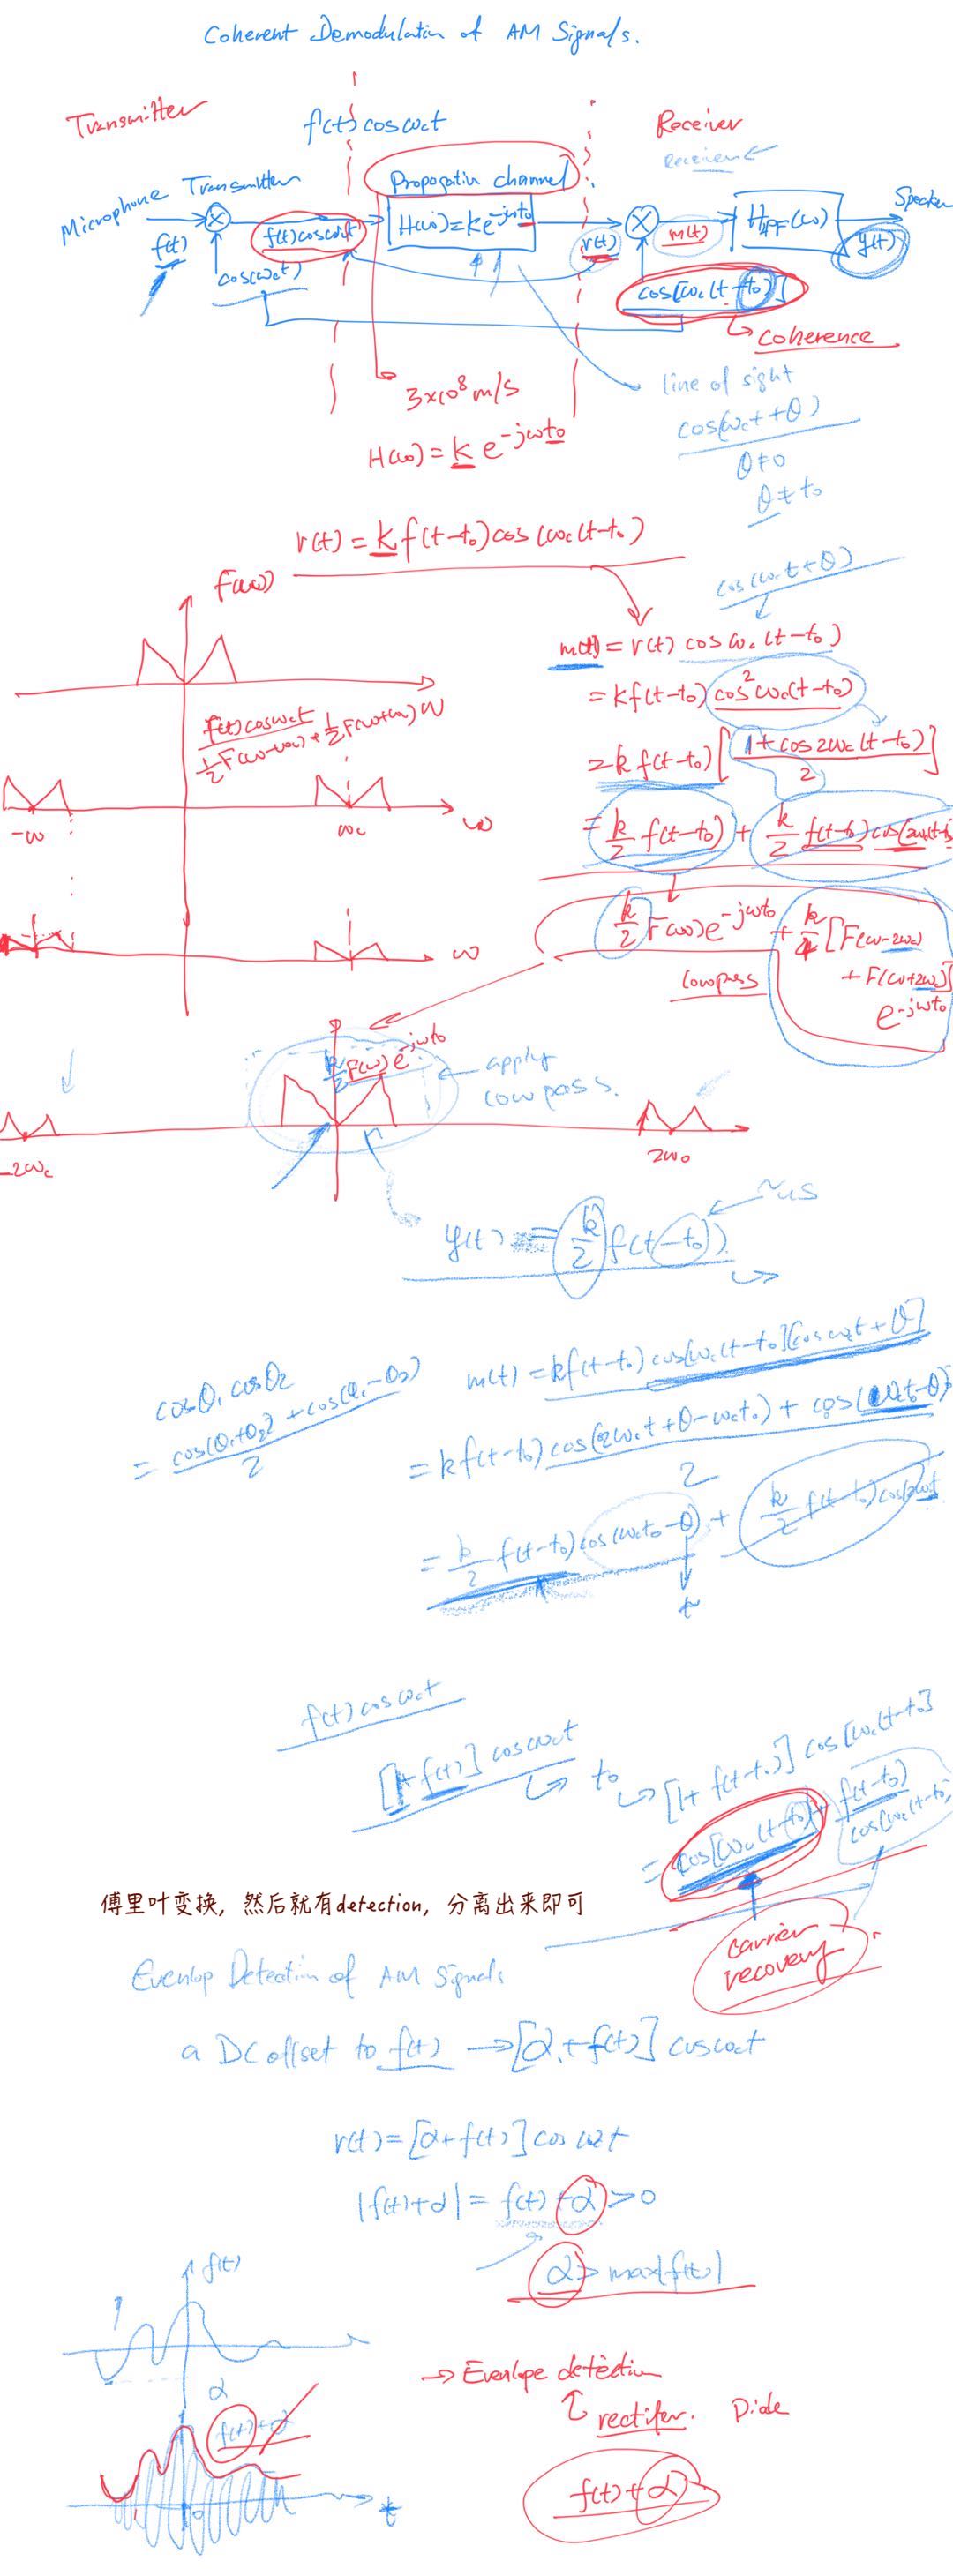 Coherent Demodulation of AM Signals.
Transmitter
f(t) cos ωct
Receiver
Microphone Transmitter
Propogatin channel
f(t)
cos(ωct)
f(t)cosωct
H(ω)=ke^-jωt0
r(t)
m(t)
H_LPF(ω)
y(t)
cos[ωc(t-t0)]
coherence
3×10^8 m/s
line of sight
H(ω) = k e^-jωt0
cos(ωct+θ)
θ≠0
θ≠t0
r(t) = k f(t-t0) cos(ωc(t-t0)
F(ω)
cos(ωct+θ)
m(t) = r(t) cos ωc(t-t0)
= kf(t-t0) cos²ωc(t-t0)
f(t)cosωct
½F(ω-ωc)+½F(ω+ωc) ω
= k f(t-t0) [1+cos2ωc(t-t0)/2]
-ω
ωc
ω
= k/2 f(t-t0) + k/2 f(t-t0)cos(2ωc(t-t
k/2 F(ω)e^-jωt0 + k/4 [F(ω-2ωc)
+F(ω+2ωc)]
e^-jωt0
ω
lowpass
k/2 F(ω)e^-jωt0
apply
lowpass.
-2ωc
2ω0
y(t) = k/2 f(t-t0)
~us
cosθ1 cosθ2
= cos(θ1+θ2)+cos(θ1-θ2)/2
m(t) = kf(t-t0) cos[ωc(t-t0][cosωct+θ]
= kf(t-t0) cos(2ωct+θ-ωct0) + cos(ωct0-θ)/2
= k/2 f(t-t0)cos(ωct0-θ) + k/2 f(t-t0)cos(2ωct
t
f(t)cosωct
[1+f(t)] cosωct
t0
[1+f(t-t0)] cos[ωc(t-t0]
= cos[ωc(t-t0)]+ f(t-t0)
cos[ωc(t-t0)
傅里叶变换，然后就有detection，分离出来即可
carrier
recovery
Evenlop Detection of AM Signals
a DC offset to f(t) → [α+f(t)] cosωct
r(t)=[α+f(t)] cos ωct
|f(t)+α| = f(t)+α>0
α> max|f(t)|
f(t)
α
f(t)+α
t
→ Evenlope detection
rectifer. Diode
f(t)+α